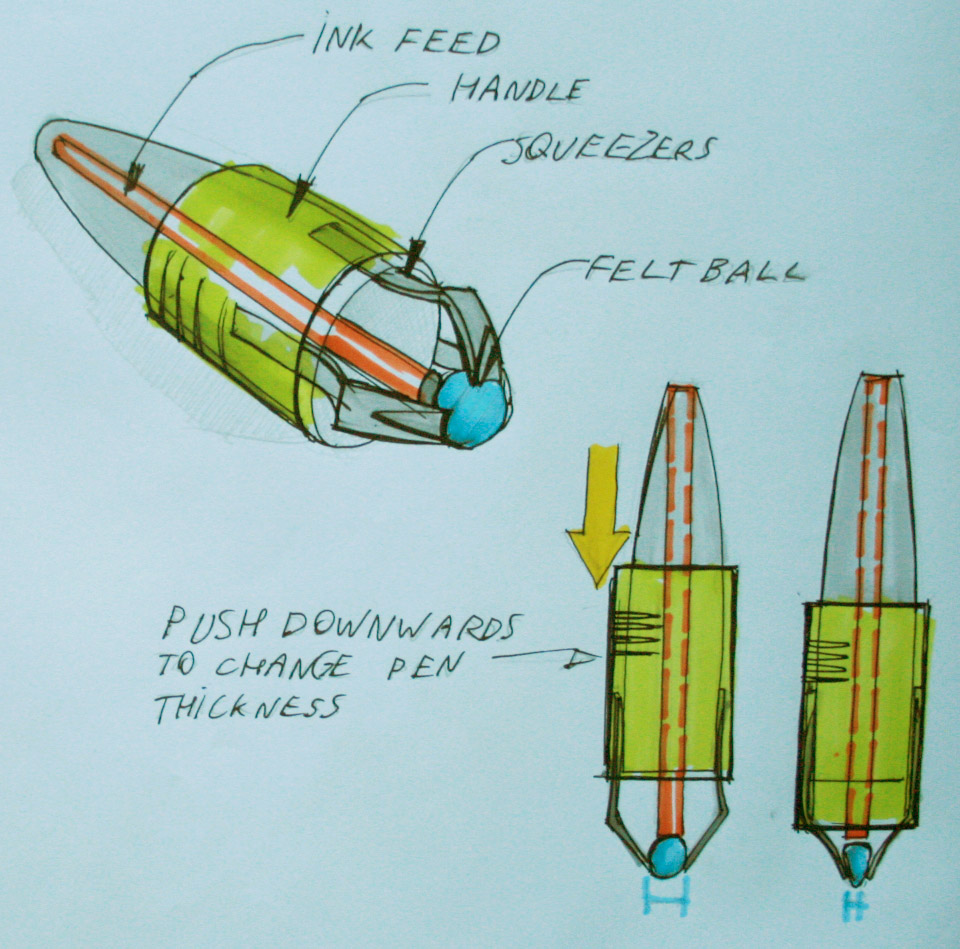 INK FEED
HANDLE
SQUEEZERS
FELT BALL
PUSH DOWNWARDS
TO CHANGE PEN
THICKNESS